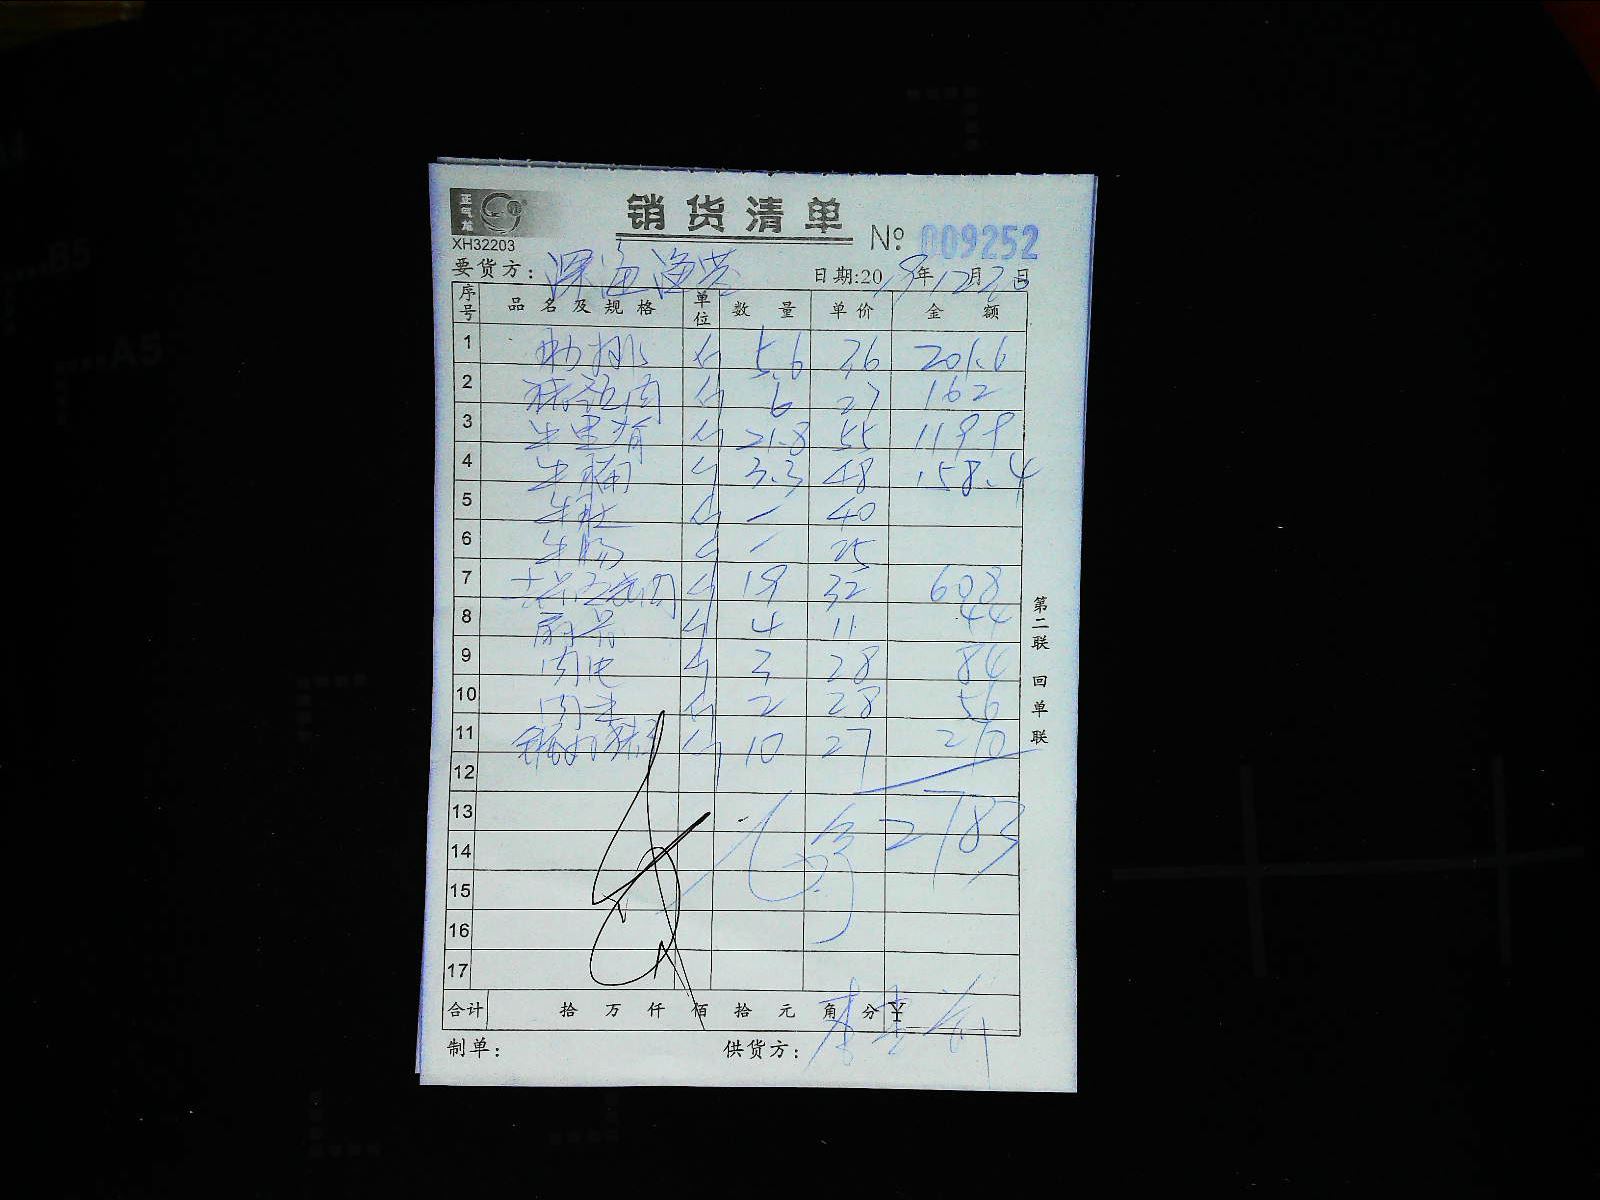 正气龙
销货清单
XH32203
№ 009252
要货方: 深海渔港
日期:2019年12月2日
序号 品名及规格 单位 数量 单价 金额
1 肋排 斤 5.6 36 201.6
2 斤 6 27 162
3 牛里脊 斤 21.8 55 1199
4 牛腩 斤 3.3 48 158.4
5 牛肚 斤 — 40
6 牛肠 斤 — 25
7 五花肉 斤 19 32 608
8 扇骨 斤 4 11 44
9 斤 3 28 84
10 斤 2 28 56
11 斤 10 27 270
12
13 2783
14
15
16
17
合计 拾 万 仟 佰 拾 元 角 分 ¥
制单:
供货方:
第二联 回单联